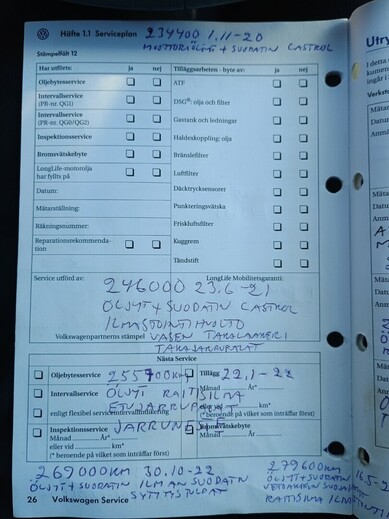 Häfte 1.1 Serviceplan
234400 1.11-20
MOOTTORIÖLJYT + SUODATIN CASTROL
Stämpelfält 12
Har utförts: ja nej
Oljebytesservice
Intervallservice
(PR-nr. QG1)
Intervallservice
(PR-nr. QG0/QG2)
Inspektionsservice
Bromsvätskebyte
LongLife-motorolja
har fyllts på
Datum:
Mätarställning:
Räkningsnummer:
Reparationsrekommenda-
tion
Tilläggsarbeten - byte av: ja nej
ATF
DSG®: olja och filter
Gastank och ledningar
Haldexkoppling; olja
Bränslefilter
Luftfilter
Däcktrycksensorer
Punkteringsvätska
Friskluftsfilter
Kuggrem
Tändstift
Service utförd av:
LongLife Mobilitetsgaranti:
246000 23.6-21
ÖLJYT + SUODATIN CASTROL
ILMASTOINTIHUOLTO
Volkswagenpartnerns stämpel
VASEN TAKALAAKERI
TAKAJARRUPALAT
Nästa Service
Oljebytesservice
255700KM
Tillägg
22.1-22
Månad År*
ÖLJYT RAITISILMA
Intervallservice
enligt flexibel serviceintervallindikering
ETUJARRUPALAT
eller vid km*
(* beroende på vilket som inträffar först)
Inspektionsservice
JARRUNESTE
Bromsvätskebyte
Månad År*
eller vid km*
(* beroende på vilket som inträffar först)
Månad År
269000KM 30.10-22
ÖLJYT + SUODATIN ILMAN SUODATIN
SYTYTYSTULPAT
279600KM 16.5-2
ÖLJYT + SUODATIN
RAITISILMA
26 Volkswagen Service
Utry
I detta
kumen
inga i
Verkstä
Mätar
Datum
Anm